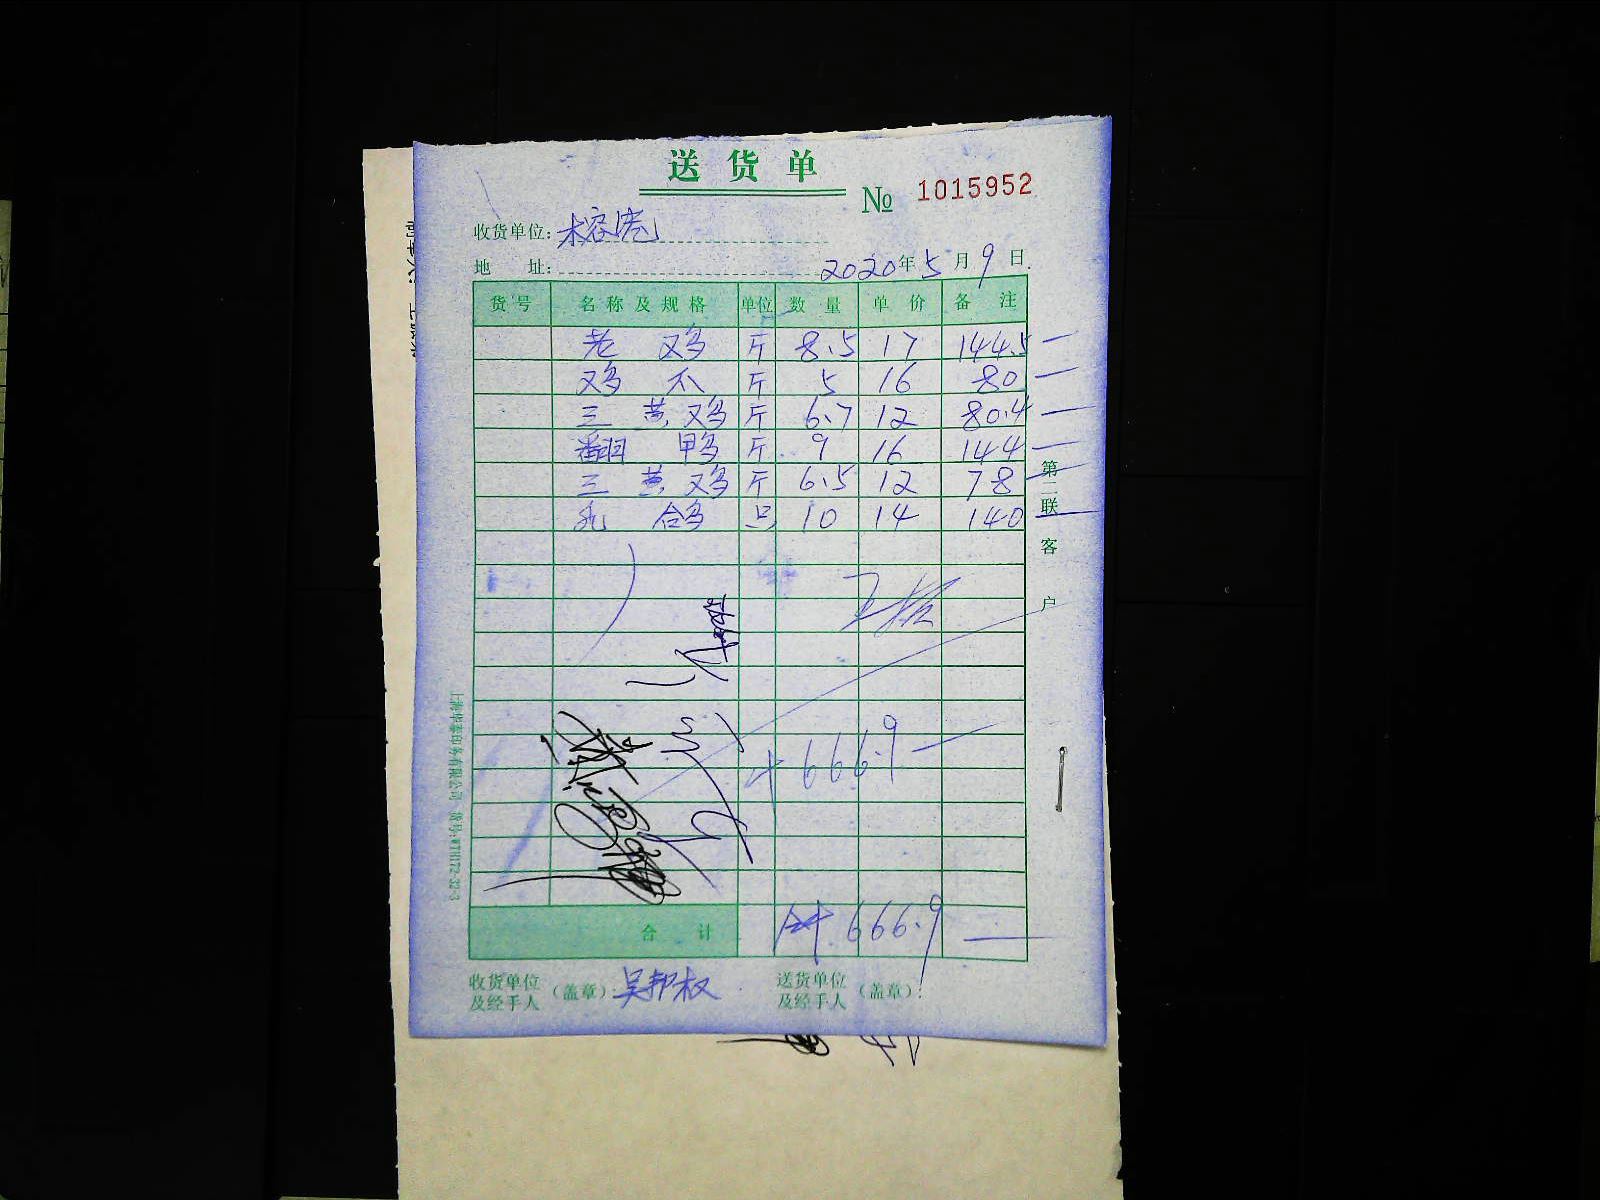 送货单
№ 1015952
收货单位:
地 址: 2020年5月9日
货号 名称及规格 单位 数量 单价 备注
老鸡 斤 8.5 17 144.5
鸡 斤 5 16 80
三黄鸡 斤 6.7 12 80.4
翻鸭 斤 9 16 144
三黄鸡 斤 6.5 12 78
乳鸽 只 10 14 140
666.9
合计 666.9
收货单位及经手人(盖章): 吴邦权
送货单位及经手人(盖章):
第二联 客户
上海华泰印务有限公司 货号:WTH172-32-3